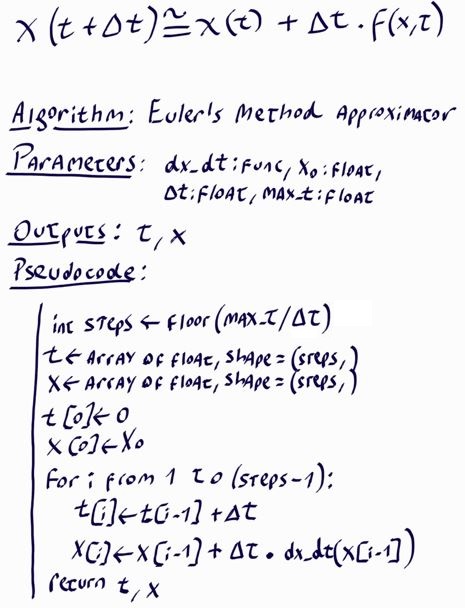 x(t+Δt)≅x(t) + Δt · f(x,t)
Algorithm: Euler's Method Approximator
Parameters: dx_dt: func, x₀: float,
Δt: float, max_t: float
Outputs: t, x
Pseudocode:
int steps ← floor(max_t/Δt)
t ← Array of float, shape = (steps,)
x ← Array of float, shape = (steps,)
t[0] ← 0
x[0] ← x₀
for i from 1 to (steps-1):
t[i] ← t[i-1] + Δt
x[i] ← x[i-1] + Δt · dx_dt(x[i-1])
return t, x